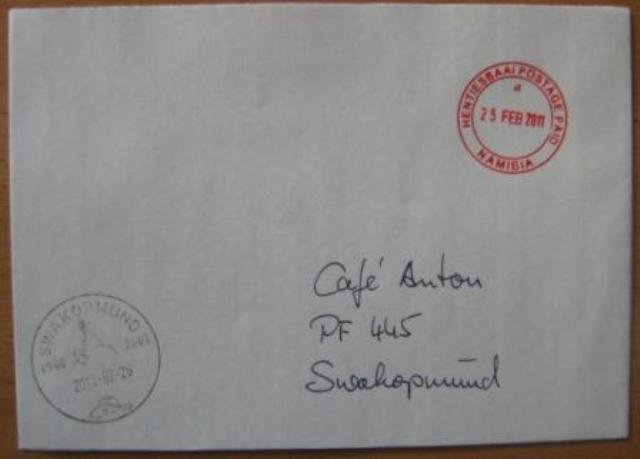 HENTIESBAAI POSTAGE PAID
a
25 FEB 2011
NAMIBIA
Café Anton
PF 445
Swakopmund
SWAKOPMUND
2011-02-26